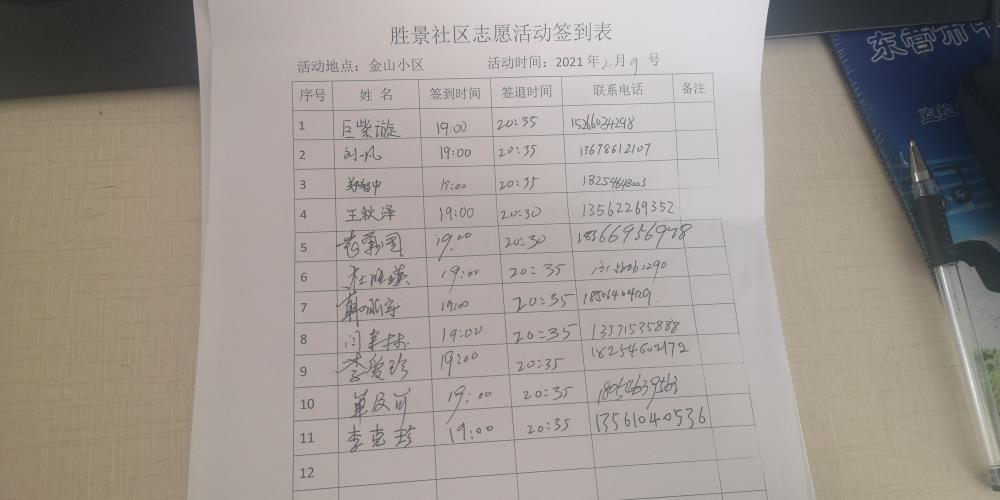 胜景社区志愿活动签到表
活动地点：金山小区 活动时间：2021年2月9号
序号 姓名 签到时间 签退时间 联系电话 备注
1 巨紫璇 19:00 20:35 15266024298
2 刘一凡 19:00 20:35 13678612107
3 19:00 20:35 18254648003
4 王秋泽 19:00 20:30 13562269352
5 19:00 20:30 18366956978
6 19:00 20:35
7 19:00 20:35
8 19:00 20:35 13371535888
9 李爱珍 19:00 20:35 18254602172
10 19:00 20:35 18054639563
11 李克珍 19:00 20:35 13561040536
12
东营市
监控